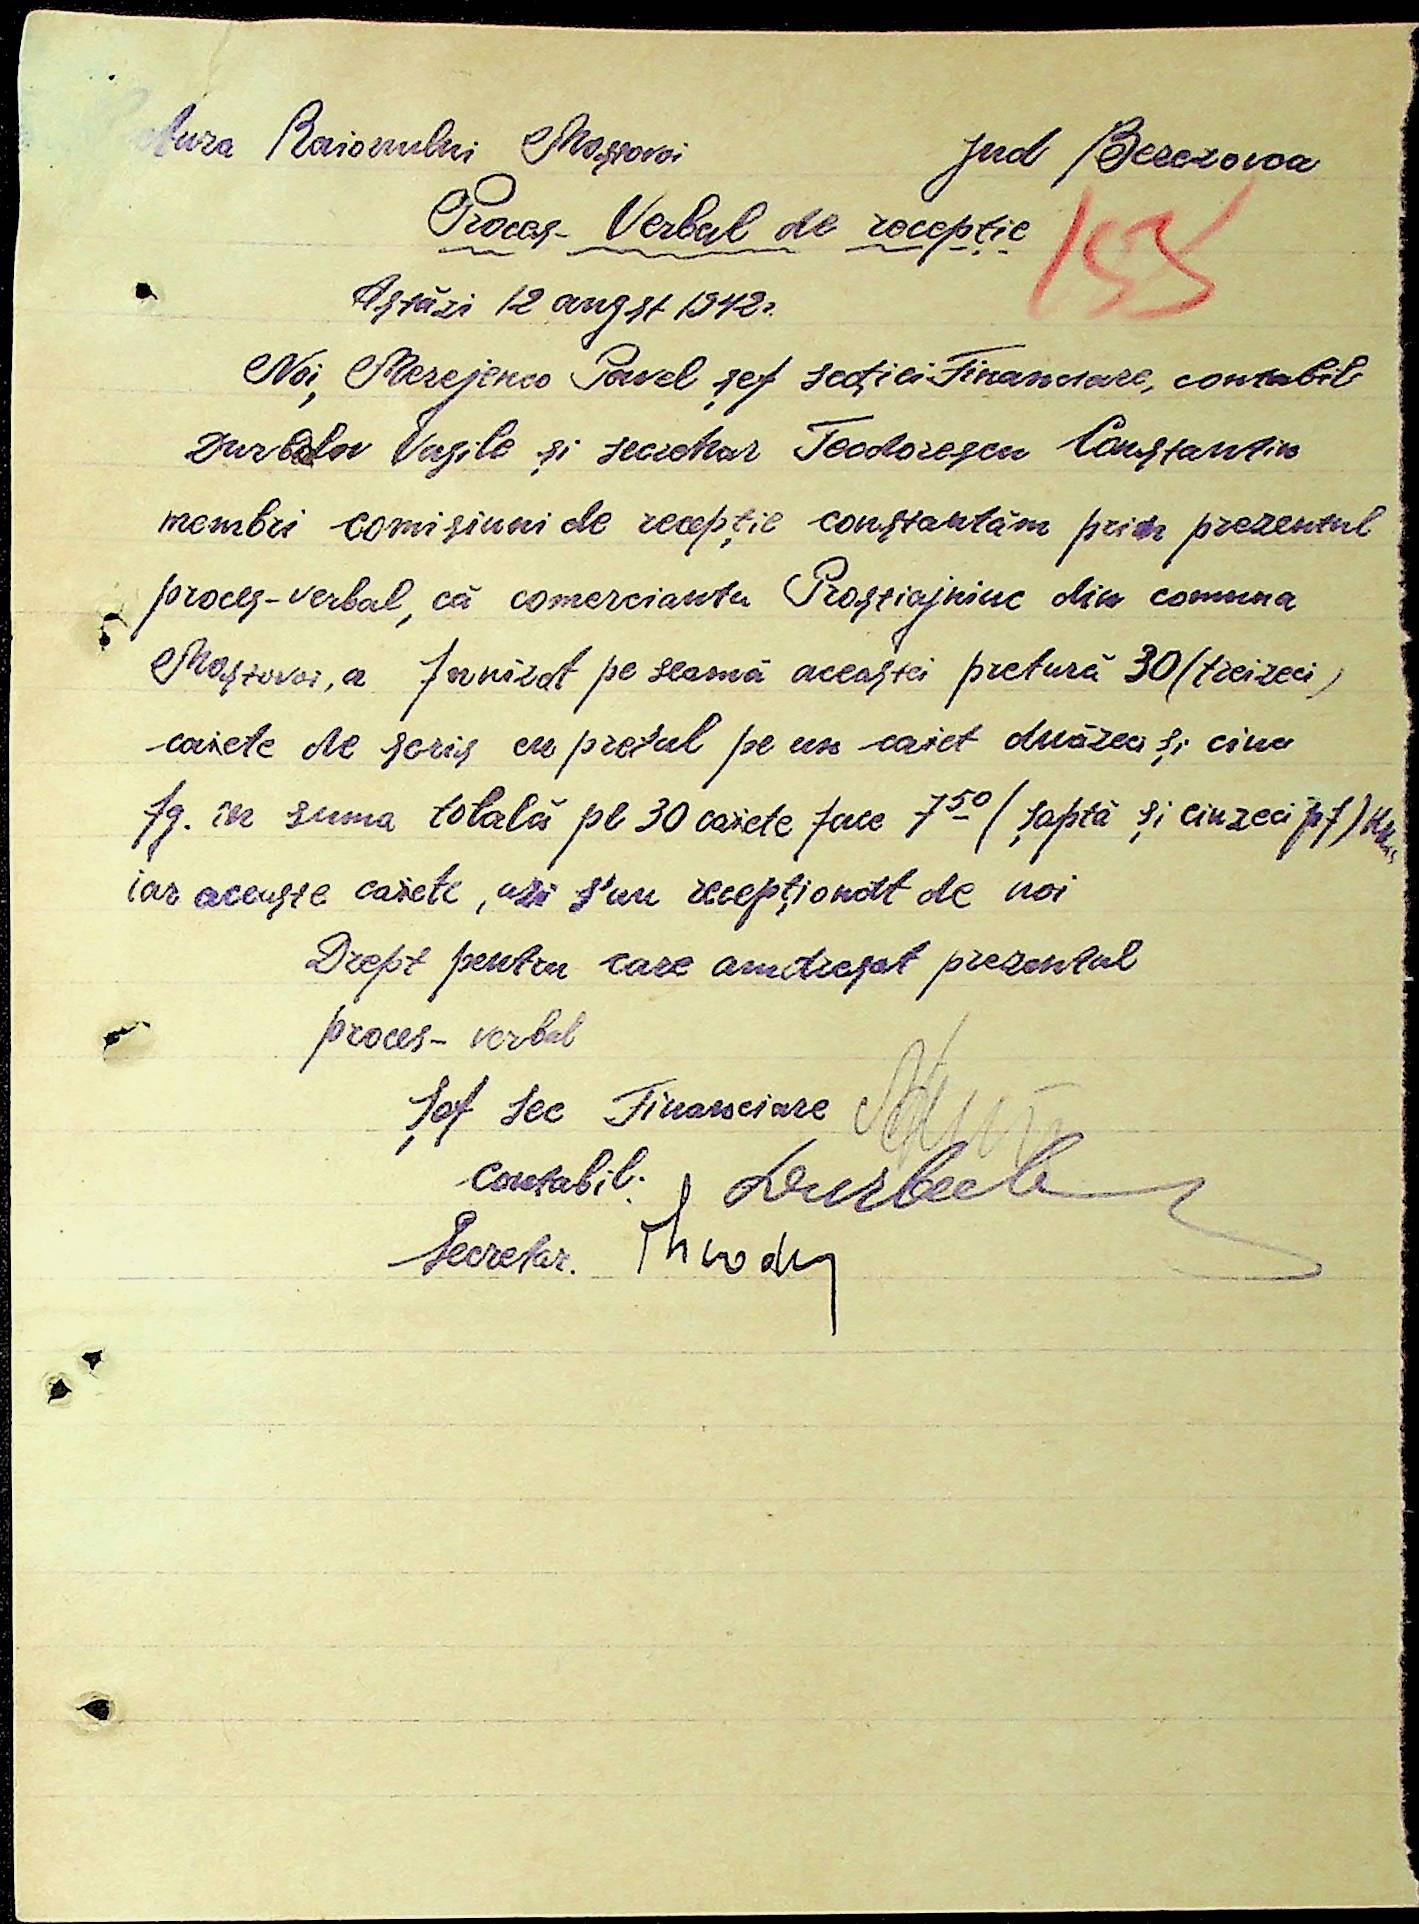 tura Raionului Mostovoi jud Berezovca
Proces-Verbal de recepție
155
Astăzi 12 august 1942.
Noi, Merejenco Pavel șef secției Financiare, contabil
Vasile și secretar Teodorescu Constantin
membri comisiuni de recepție constantăm prin prezentul
proces-verbal, că comerciantu din comuna
Mostovoi, a furnizat pe seamă acestei pretură 30 (treizeci)
caiete de scris cu prețul pe un caiet duăzeci și cinci
fg. în suma totală pt 30 caiete face 7 50 (șaptă și cinzeci pf)
iar aceste caiete, azi s'au recepționat de noi
Drept pentru care am dresat prezentul
proces-verbal
Șef Sec Financiare
contabil.
Secretar.